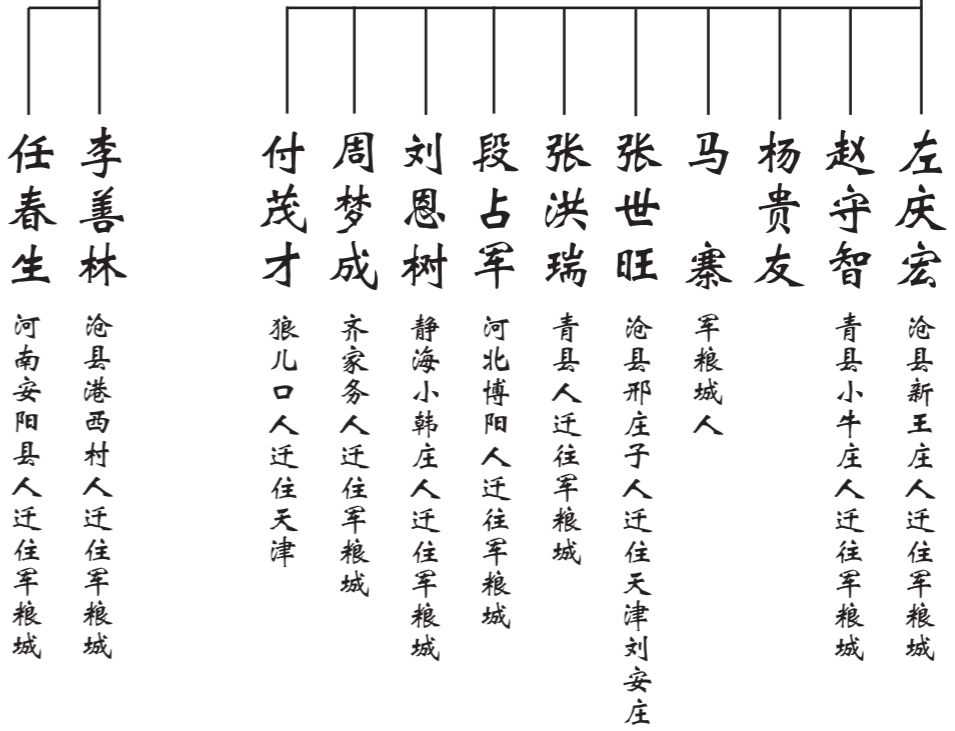 左庆宏
沧县新王庄人迁住军粮城
赵守智
青县小牛庄人迁往军粮城
杨贵友
马寨
军粮城人
张世旺
沧县邢庄子人迁住天津刘安庄
张洪瑞
青县人迁往军粮城
段占军
河北博阳人迁往军粮城
刘恩树
静海小韩庄人迁住军粮城
周梦成
齐家务人迁住军粮城
付茂才
狼儿口人迁住天津
李善林
沧县港西村人迁住军粮城
任春生
河南安阳县人迁住军粮城